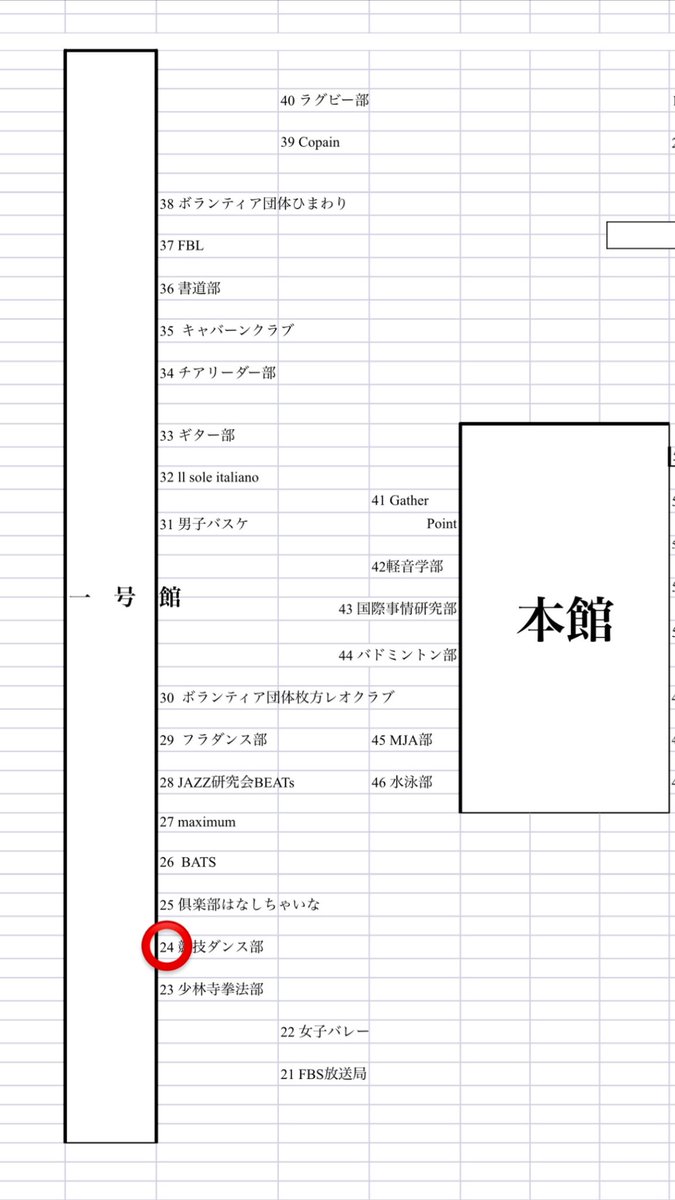 40 ラグビー部
39 Copain
38 ボランティア団体ひまわり
37 FBL
36 書道部
35 キャバーンクラブ
34 チアリーダー部
33 ギター部
32 ll sole italiano
41 Gather
Point
31 男子バスケ
42軽音学部
一 号 館
本館
43 国際事情研究部
44 バドミントン部
30 ボランティア団体枚方レオクラブ
29 フラダンス部
45 MJA部
28 JAZZ研究会BEATs
46 水泳部
27 maximum
26 BATS
25 倶楽部はなしちゃいな
24 競技ダンス部
23 少林寺拳法部
22 女子バレー
21 FBS放送局